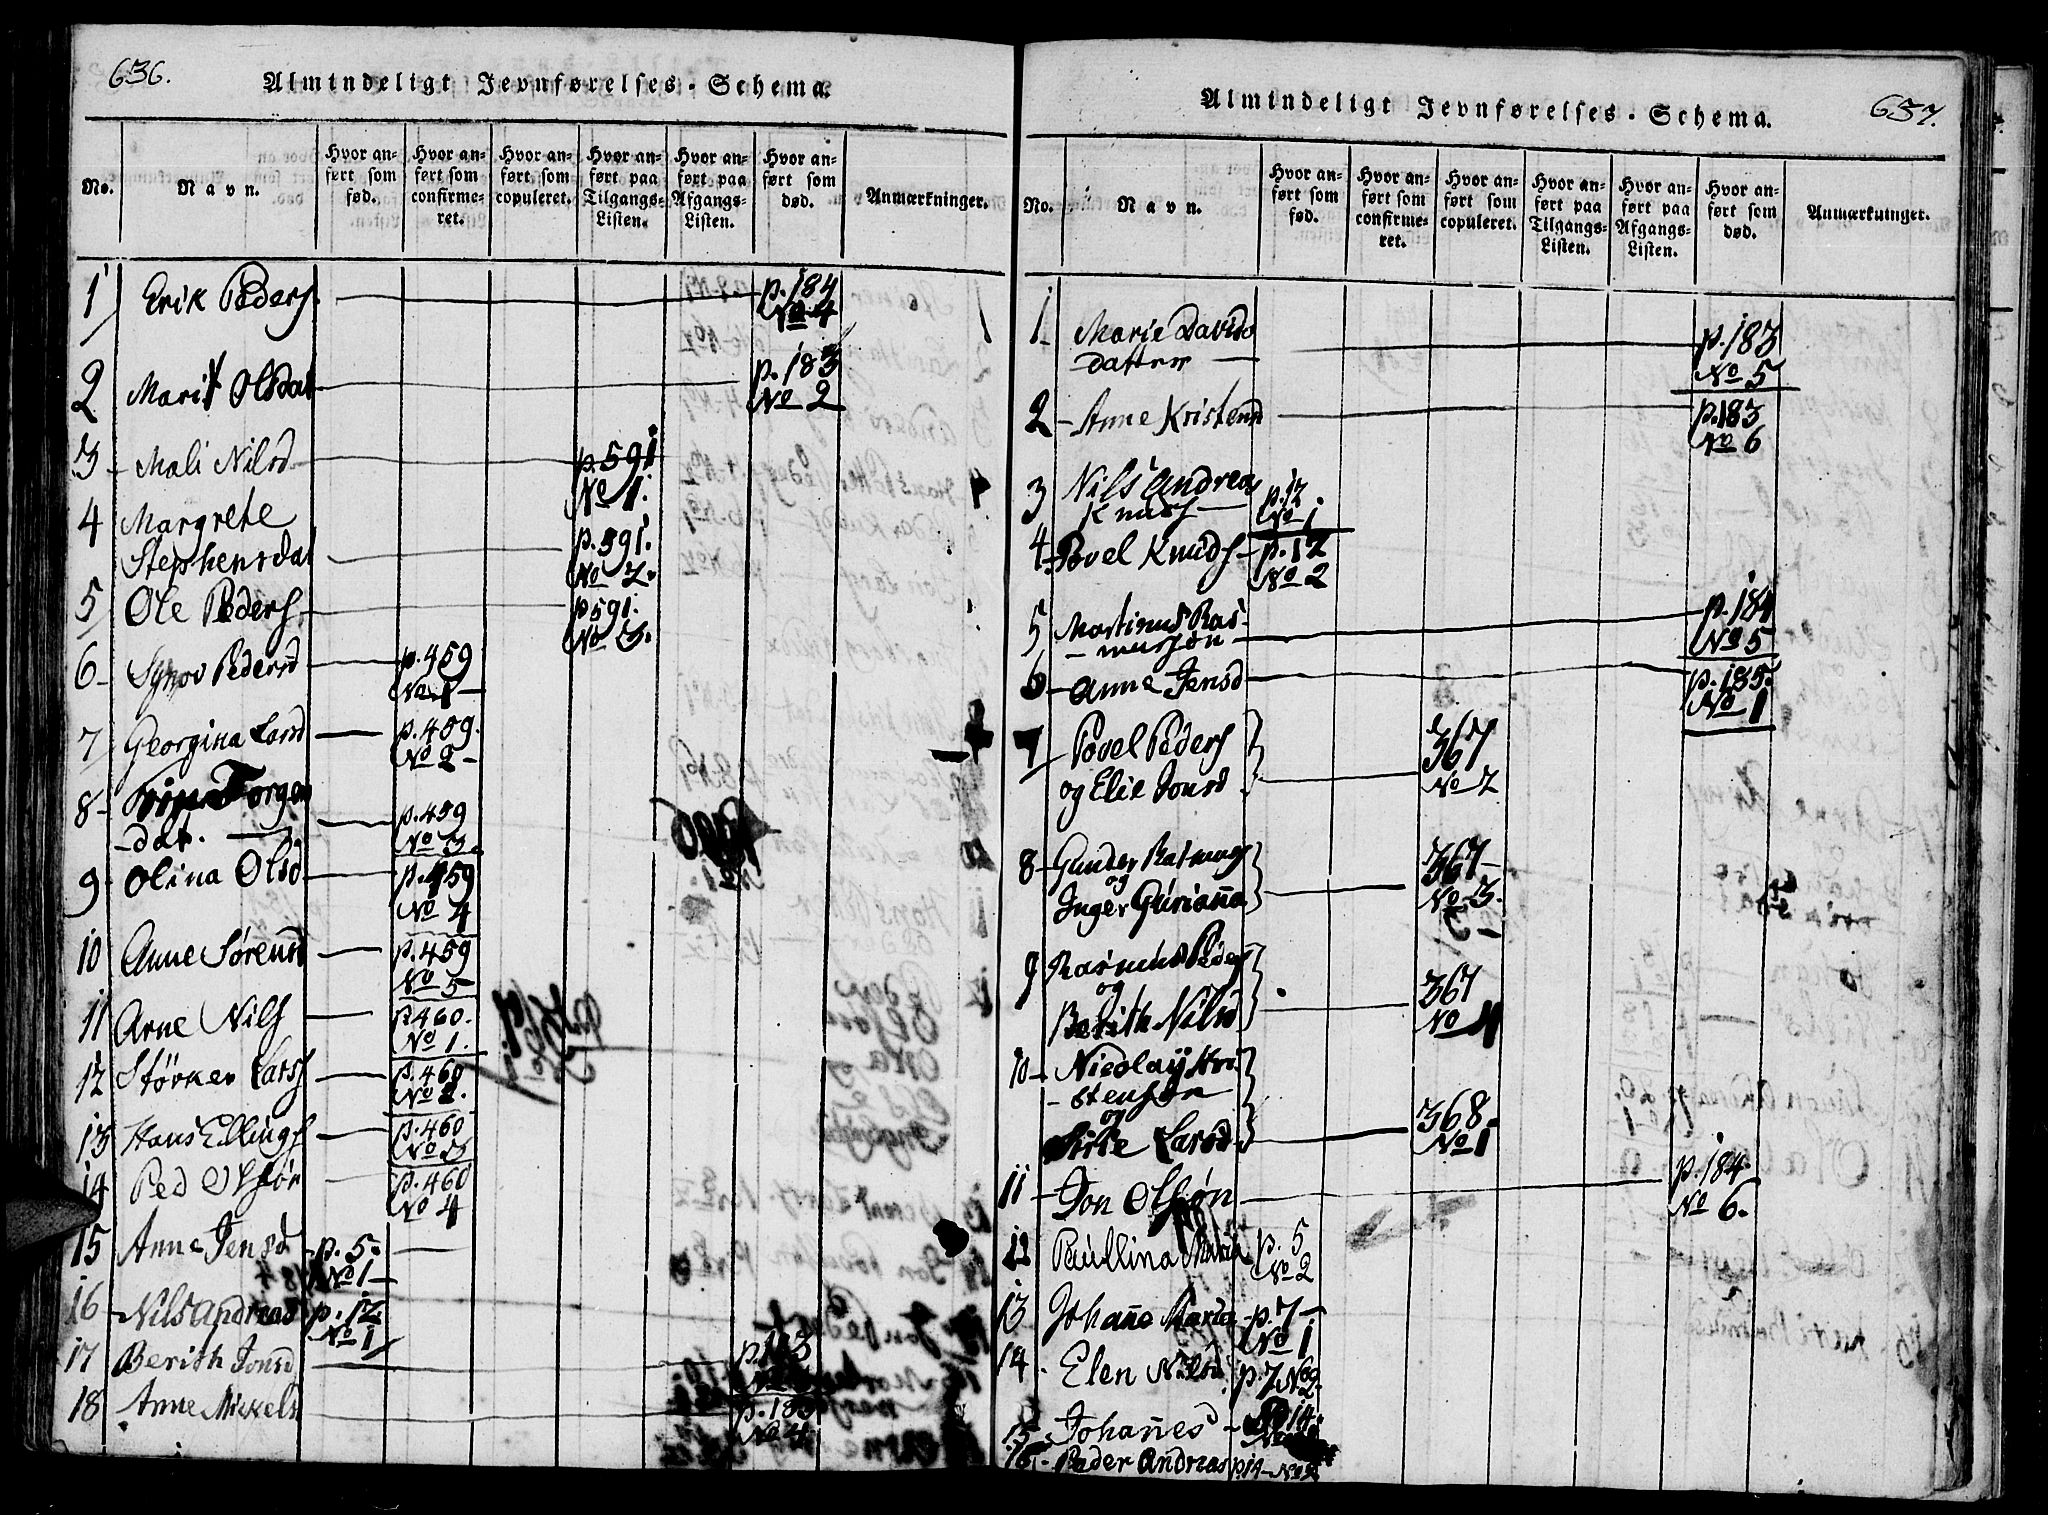 636.
Almindeligt Jevnførelses-Schema.
No.
Navn.
Hvor an-
ført som
fød.
Hvor an-
ført som
confirme-
ret.
Hvor an-
ført som
copuleret.
Hvor an-
ført paa
Tilgangs-
Listen.
Hvor an-
ført paa
Afgangs-
Listen.
Hvor an-
ført som
død.
Anmærkninger.
1 Erik Peders p. 184
No 4
2 Marit Olsdat p. 183
No 2
3 Mali Nilsd p. 591
No 1.
4 Margrete
Stephensdat p. 591.
No 2.
5 Ole Peders p 591.
No 3.
6 Synov Pedersd p. 459
No 1
7 Georgina Larsd p. 459.
No 2
8 Torgen
dat. p. 459
No 3.
9 Olina Olsd p. 459
No 4
10 Anne Sørensd p. 459
No 5
11 Arne Nils p 460.
No 1.
12 Størker Lars p. 460
No 2.
13 Hans Ellings p. 460
No 3
14 Ped Olsøn p. 460
No 4
15 Anne Jensd p. 5.
No 1
16 Nils Andreas p. 12
No 1
17 Berith Jonsd p. 183
18 Anne Mickelsd p. 183
No 4
637.
Almindeligt Jevnførelses-Schema.
No.
Navn.
Hvor an-
ført som
fød.
Hvor an-
ført som
confirme-
ret.
Hvor an-
ført som
copuleret.
Hvor an-
ført paa
Tilgangs-
Listen.
Hvor an-
ført paa
Afgangs-
Listen.
Hvor an-
ført som
død.
Anmærkninger.
1 Marie Davids
datter p. 183
No 5
2 Anne Kristensd p. 183
No 6
3 Nils Andreas
Knuds p. 12.
No 1
4 Povel Knuds p. 12
No 2
5 Martinus Ras-
mussøn p. 184
No 5
6 Anne Jensd p. 185.
No 1
7 Povel Peders
og Elie Jonsd 367
No 2
8 Gunder Rasmus
og
Inger Guriana 367
No 3.
9 Rasmus Peders
og
Berith Nilsd 367
No 4
10 Nicolay Kri-
stensøn
og
Larsd 368.
No 1
11 Jon Olsøn p. 184.
No 6.
12 Paullina Maria p. 5
No 2
13 Johane Maria p. 7
No 1
14 Elen Nilsd p. 7 No 2
15 Johanes 14.
16 Peder Andreas p 14 No 2